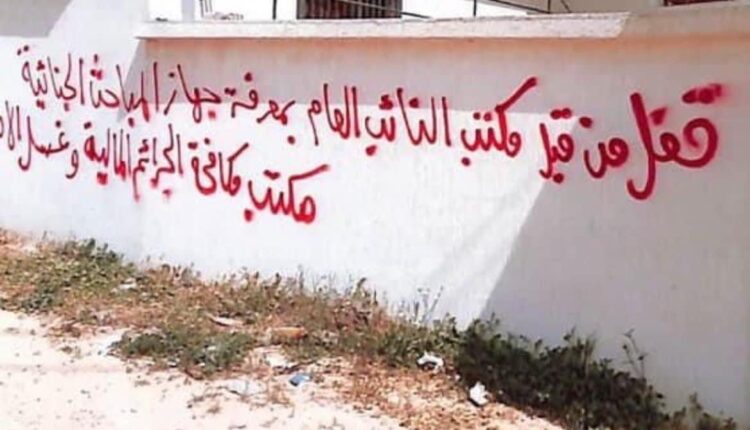 قفل من قبل مكتب النائب العام بمعرفة جهاز المباحث الجنائية
مكتب مكافحة الجرائم المالية وغسل